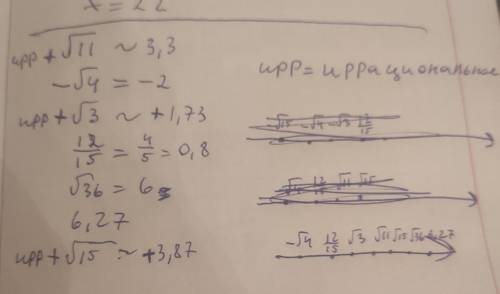 x = 22
ирр + √11 ~ 3,3
-√4 = -2
ирр + √3 ~ +1,73
12/15 = 4/5 = 0,8
√36 = 6
6,27
ирр + √15 ~ +3,87
ирр = иррациональное
-√15 -√4 -√3 12/15
√11 √15
-√4 12/15 √3 √11 √15 √36 6,27